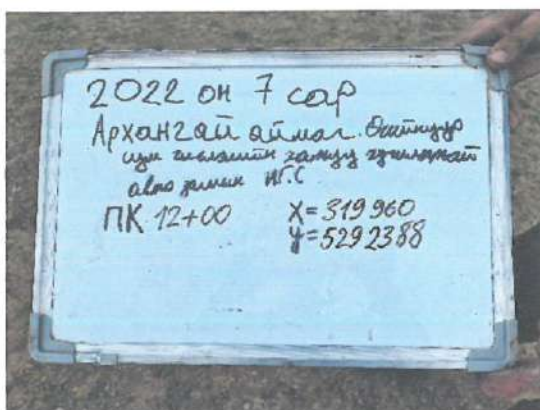 2022 он 7 сар
Архангай аймаг. Өгийнуур
сум
авто замын ИГС
ПК 12+00 X=319960
y=5292388